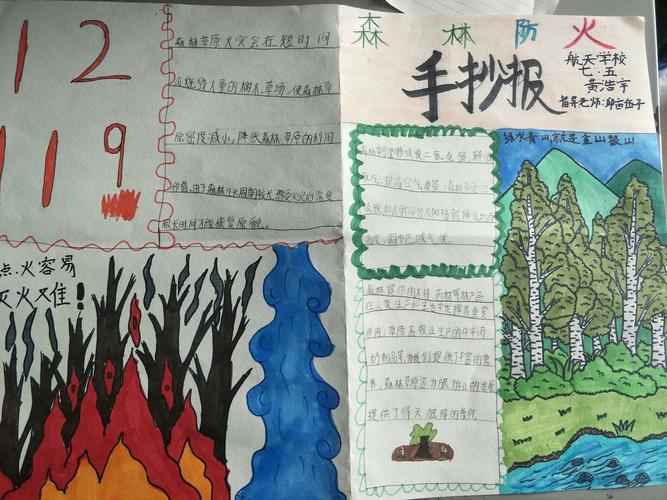 12
119
森林草原火灾会在短时间
内烧毁大量的树木、草场,使森林草
原密度减小,降低森林草原的利用
价值,由于森林生长周期较长,遭受火灾后需要
很长时间才能恢复原貌。
点火容易
灭火难!
森林防火
手抄报
航天学校
七.五
黄浩宇
指导老师:
绿水青山就是金山银山
森林草原能吸收二氧化碳,释放
氧气,提高空气质量,森林草原
候。
森林提供的木材、药材等林产品
在人类生产和生活中发挥着重要
作用;草原畜牧业生产的牛羊肉
奶制品等为我们提供了丰富的营
养,森林草原还为旅游业的发展
提供了得天独厚的条件